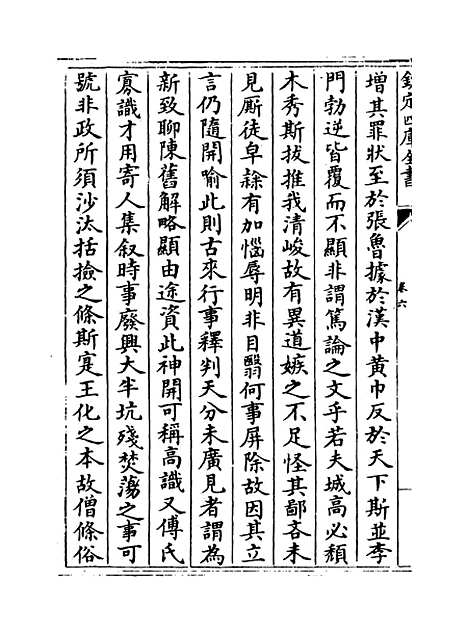 欽定四庫全書
卷六
增其罪狀至於張魯據於漢中黄巾反於天下斯並李
門勃逆皆覆而不顯非謂篤論之文乎若夫城高必頽
木秀斯拔推我清峻故有異道嫉之不足怪其鄙吝未
見厮徒皁隸有加惱辱明非目翳何事屏除故因其立
言仍隨開喻此則古來行事釋判天分未廣見者謂為
新致聊陳舊解略顯由途資此神開可稱高識又傅氏
寡識才用寄人集叙時事廢興大半坑殘焚蕩之事可
號非政所須沙汰括撿之條斯寔王化之本故僧條俗